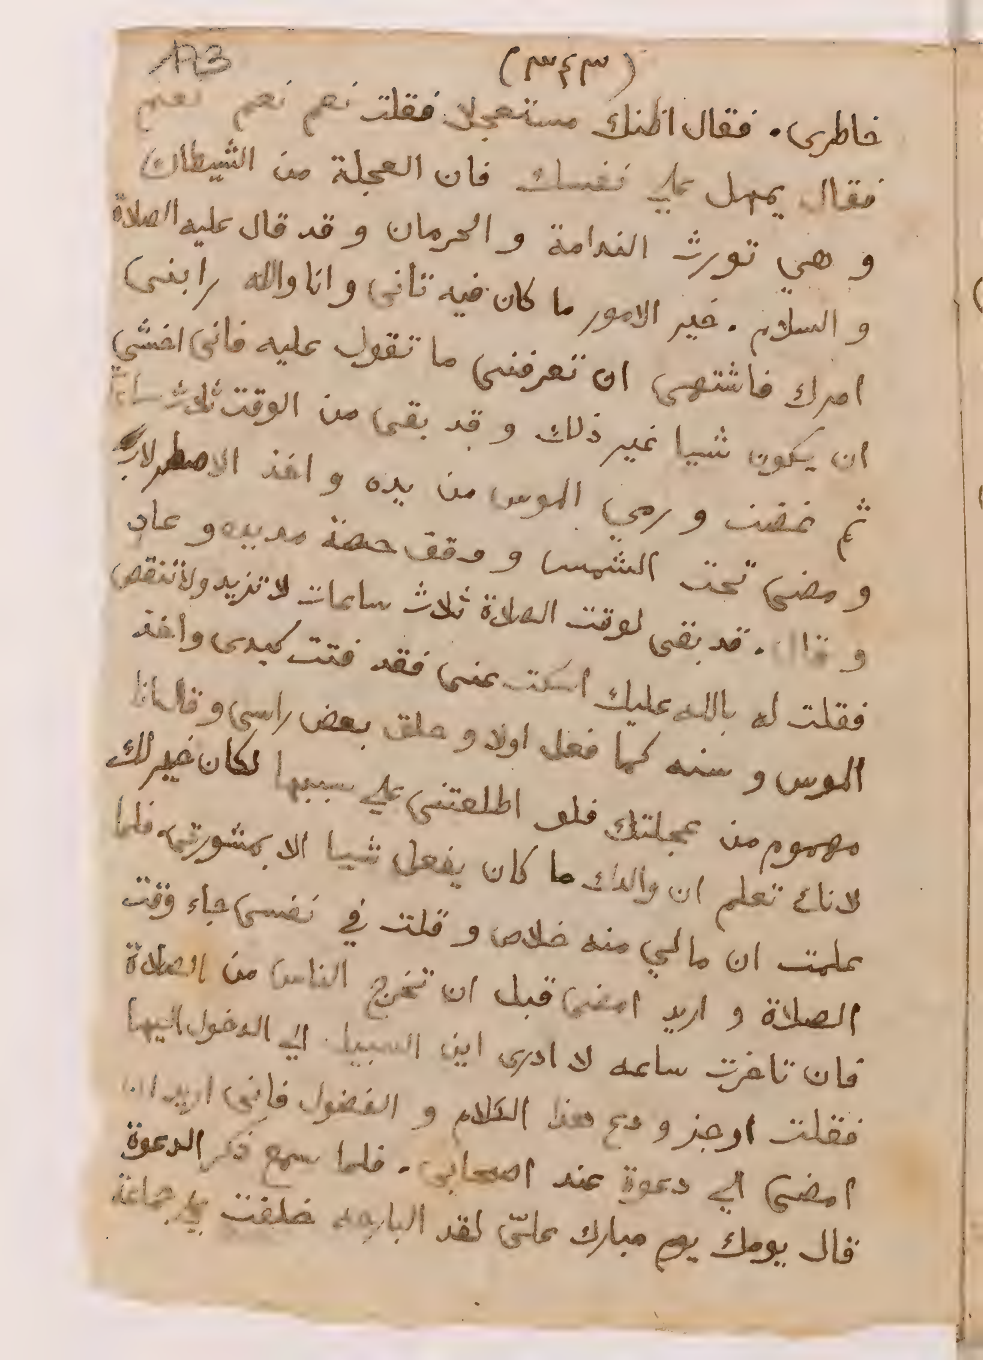 173
(٣٤٣)
خاطرى. فقال اظنك مستعجلا فقلت نعم نعم نعم
فقال يمهل علي نفسك فان العجلة من الشيطان
و هي تورث الندامة و الحرمان و قد قال عليه الصلاة
و السلام. خير الامور ما كان فيه تانى و انا والله رابنى
امرك فاشتهى ان تعرفنى ما تقول عليه فانى اخشي
ان يكون شيا غير ذلك و قد بقى من الوقت ثلاث ساعات
ثم غضب و رمي الموس من يده و اخذ الاصطرلاب
و مضى تحت الشمس و وقف حصة مديده و عاد
و قال. قد بقى لوقت الصلاة ثلاث ساعات لا تزيد ولا تنقص
فقلت له بالله عليك اسكت عنى فقد فتت كبدى و اخذ
الموس و سنه كما فعل اولا و حلق بعض راسى و قال انا
مهموم من عجلتك فلو اطلعتنى علي سببها لكان خير لك
لانك تعلم ان والدك ما كان يفعل شيا الا بمشورتى. فلما
علمت ان مالي منه خلاص و قلت في نفسى جاء وقت
الصلاة و اريد امضى قبل ان تخرج الناس من الصلاة
فان تاخرت ساعه لا ادرى اين السبيل الي الدخول اليها
فقلت اوجز و دع هذا الكلام و الفضول فاِنى اريد ان
امضى الي دعوة عند اصحابى. فلما سمع ذكر الدعوة
قال يومك يوم مبارك علىّ لقد البارحه حلفت علي جماعة